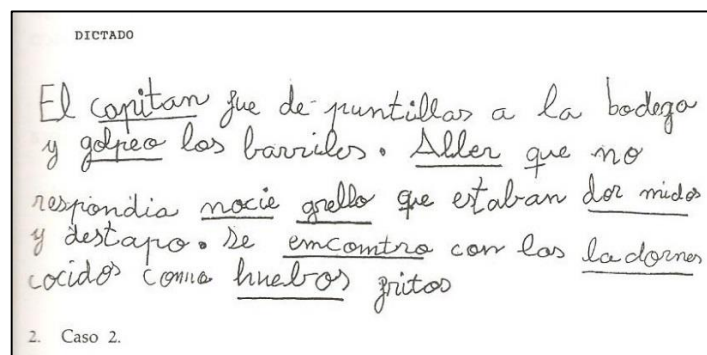 DICTADO
El capitan fue de puntillas a la bodega
y golpeo los barriles. Aller que no
respondia nocie grello que estaban dor midos
y destapo. se emcomtro com los ladornes
cocidos como huebos fritos
2. Caso 2.